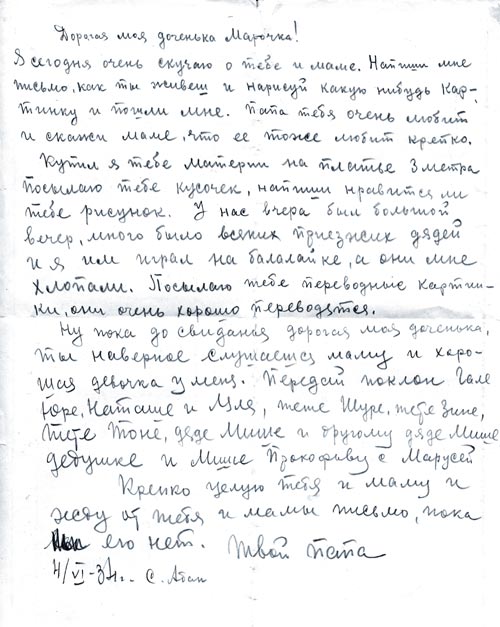 Дорогая моя доченька Марочка!
Я сегодня очень скучаю о тебе и маме. Напиши мне
письмо, как ты живеш и нарисуй какую нибудь кар-
тинку и пошли мне. Папа тебя очень любит
и скажи маме, что ее тоже любит крепко.
Купил я тебе материи на платье 3 метра
посылаю тебе кусочек, напиши нравится ли
тебе рисунок. У нас вчера был большой
вечер, много было всяких приезжих дядей
и я им играл на балалайке, а они мне
хлопали. Посылаю тебе переводные картин-
ки, они очень хорошо переводятся.
Ну пока до свидания дорогая моя доченька,
ты наверное слушаешся маму и харо-
шая девочка у меня. Передай поклон Гале
Юре, Наташе и Ляле, тете Шуре, тете Зине,
тете Тоне, дяде Мише и другому дяде Мише
дедушке и Мише Прокофьву с Марусей
Крепко целую тебя и маму и
жду от тебя и мамы письмо, пока
его нет. Твой папа
4/VI-37г. с. Абан